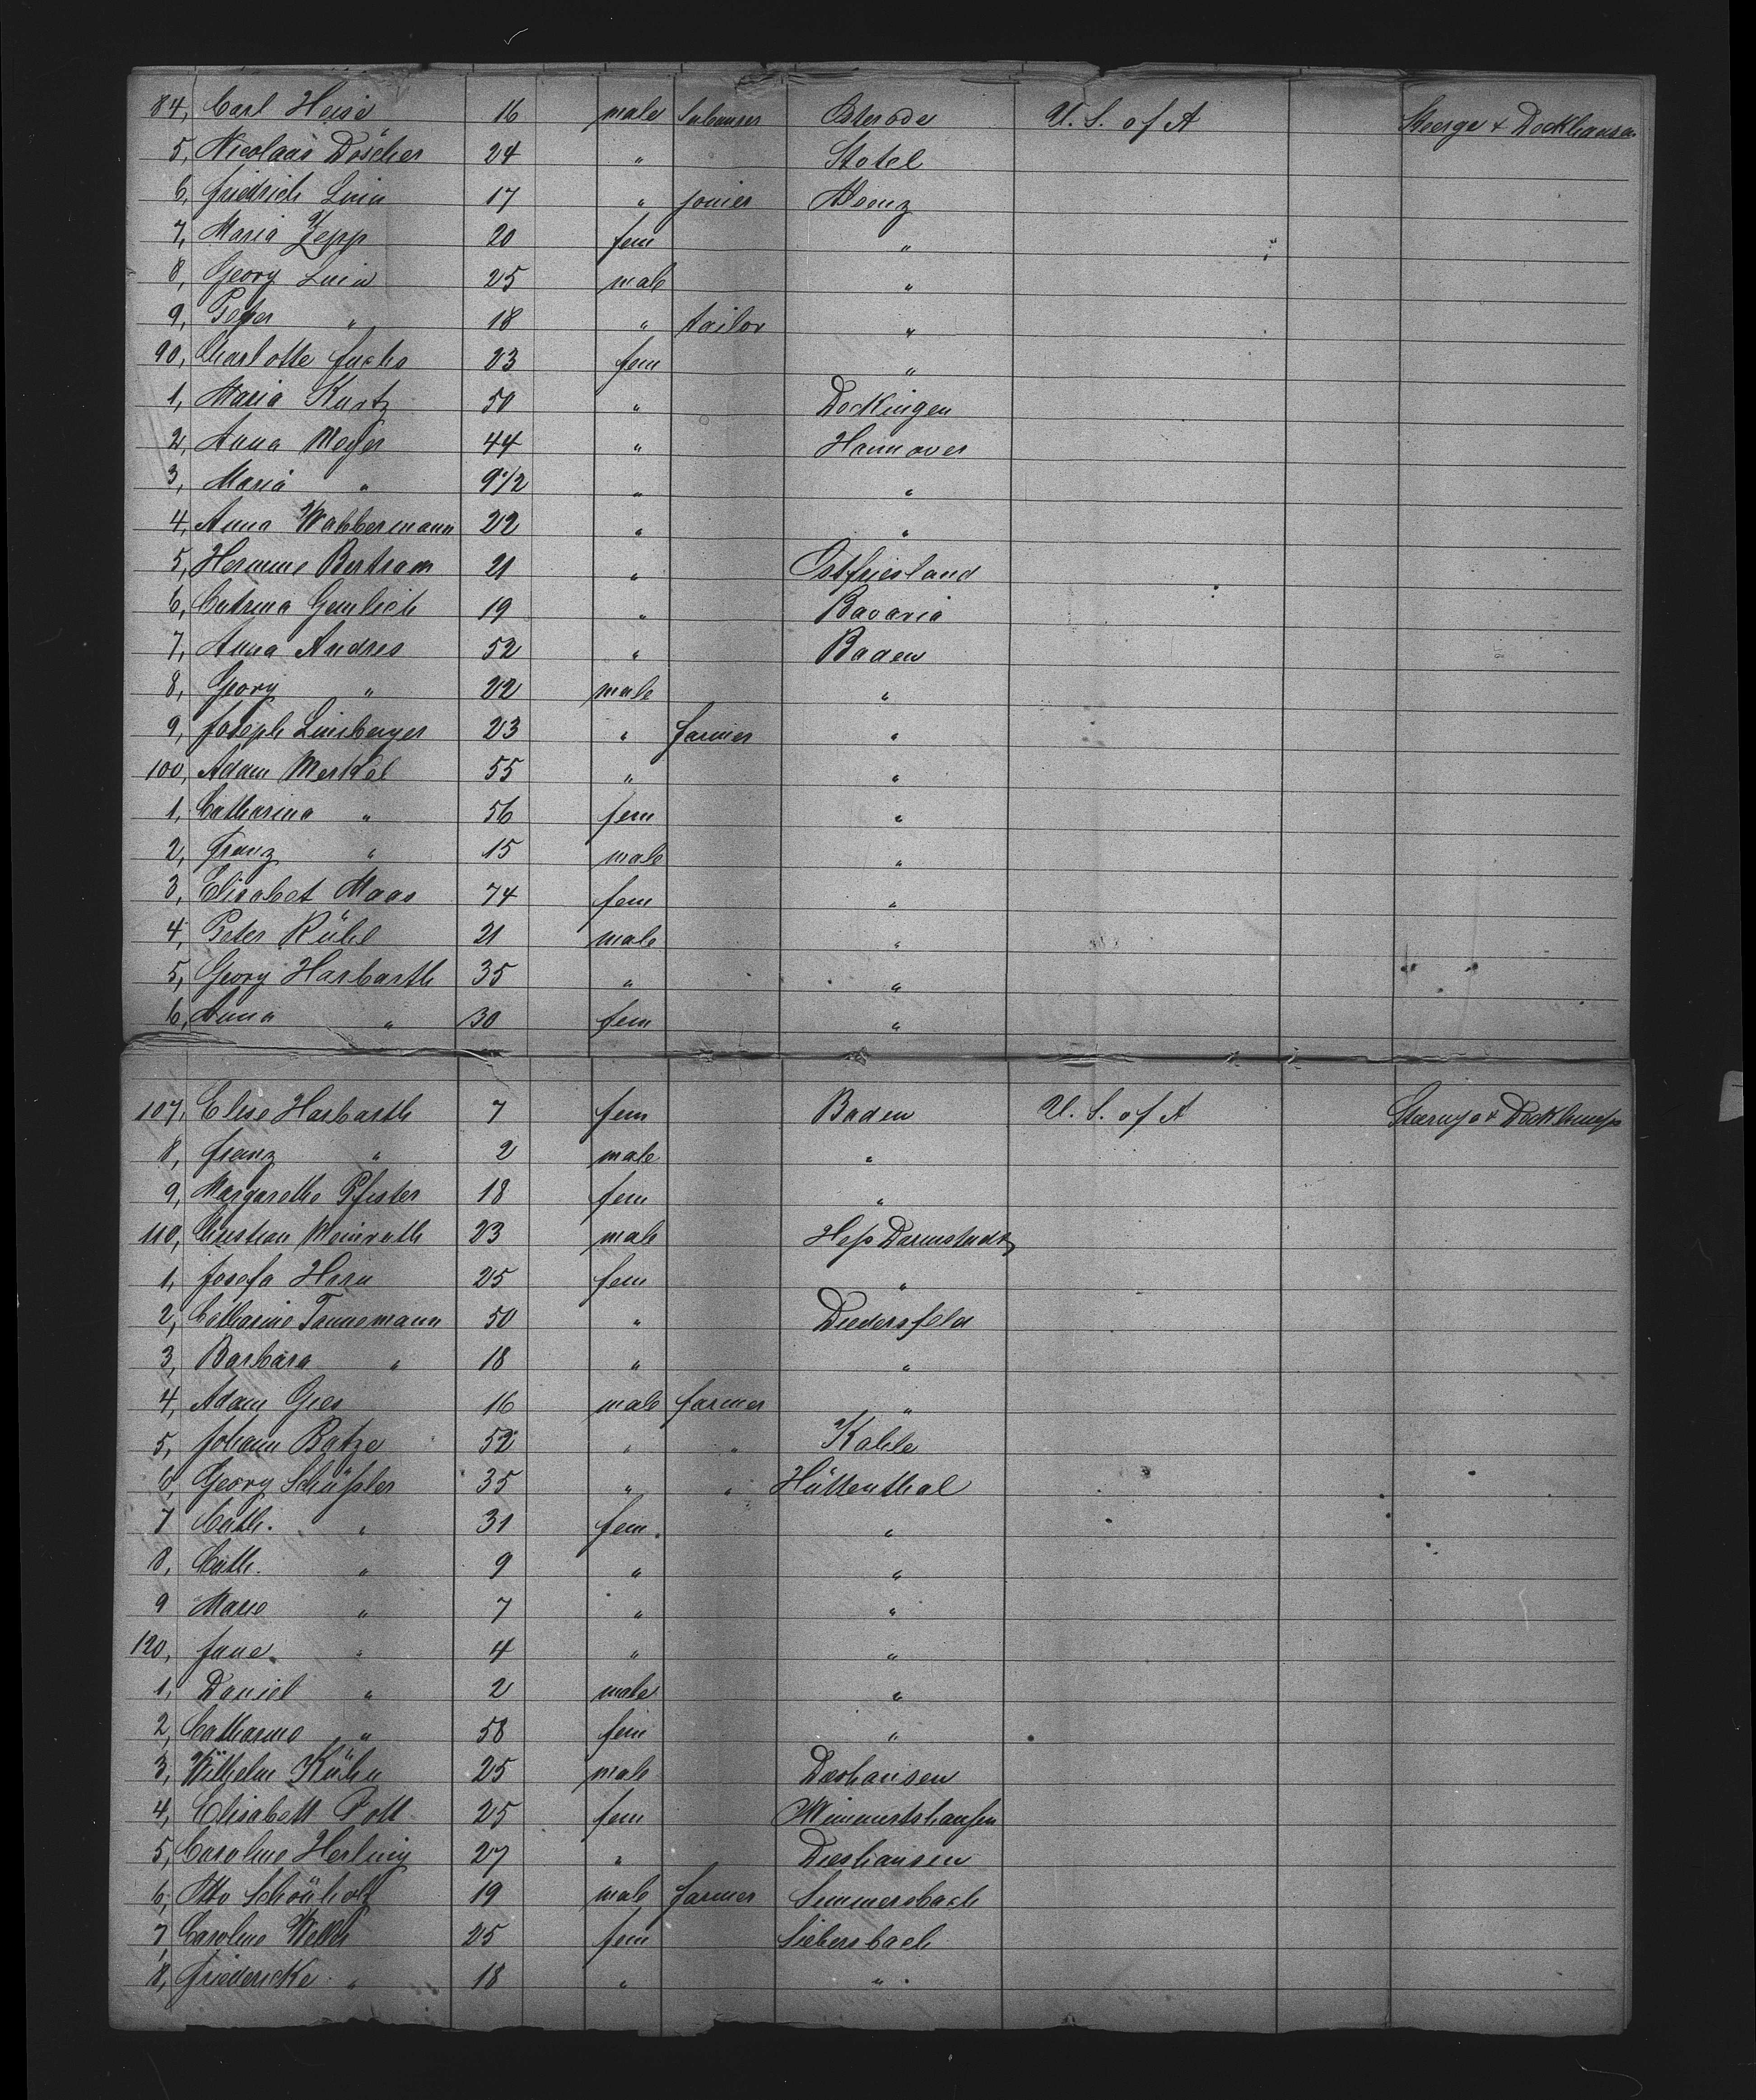 84, Carl Heise 16 male Osterode U. S. of A Steerge & Dockhausen
5, Nicolaus Döscher 24 " Stotel
6, Friedrich Luin 17 " joiner
7, Maria Zepp 20 fem "
8, Georg Luin 25 male "
9, Peter " 18 " tailor "
90, Charlotte Fuchs 23 fem "
1, Maria Kurtz 50 " Dockingen
2, Anna Meyer 44 " Hannover
3, Maria " 9 1/2 " "
4, Anna Wabbermann 22 " "
5, Hermine Bertram 21 " Ostfriesland
6, Catrina Gemlich 19 " Bavaria
7, Anna Andres 52 " Baden
8, Georg " 22 male "
9, Joseph Linsberger 23 " farmer "
100, Adam Merkel 55 " "
1, Catharina " 56 fem "
2, Franz " 15 male "
3, Elisabet Maas 74 fem "
4, Peter Rühl 21 male "
5, Georg Harbarth 35 " "
6, Anna " 30 fem "
107, Elise Harbarth 7 fem Baden U. S. of A
8, Franz " 2 male "
9, Margarethe Pfister 18 fem "
110, Christian Weinruth 23 male Hess Darmstadt
1, Josefa Horn 25 fem "
2, Catharine Tannemann 50 " Diedersfeld
3, Barbara " 18 " "
4, Adam Gies 16 male farmer "
5, Johann Batze 52 " " Kahle
6, Georg Schüssler 35 " " Hüttenthal
7 Cath. " 31 fem. "
8, Cath. " 9 " "
9 Marie " 7 " "
120, Jane. " 4 " "
1, Daniel " 2 male "
2, Catharine " 58 fem "
3, Wilhelm Kühn 25 male
4, Elisabeth Pott 25 fem Wimmertshausen
5, Caroline Herling 27 " Dieshausen
6, Otto Schönholz 19 male farmer Simmersbach
7, Caroline Weller 25 fem Siebersbach
8, Friedericke " 18 " "